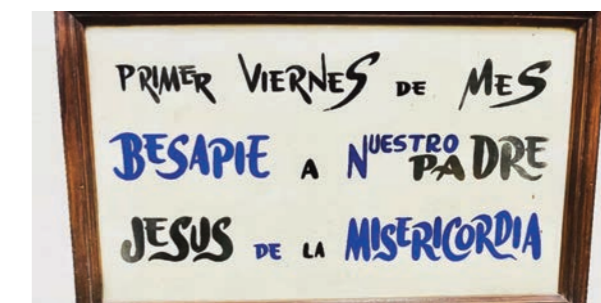 PRIMER VIERNES DE MES
BESAPIE A NUESTRO PADRE
JESUS DE LA MISERICORDIA